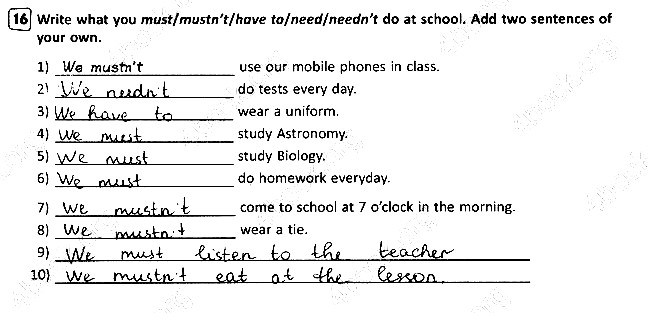 16 Write what you must/mustn't/have to/need/needn't do at school. Add two sentences of
your own.
1) We mustn't use our mobile phones in class.
2) We needn't do tests every day.
3) We have to wear a uniform.
4) We must study Astronomy.
5) We must study Biology.
6) We must do homework everyday.
7) We mustn't come to school at 7 o'clock in the morning.
8) We mustn't wear a tie.
9) We must listen to the teacher
10) We mustn't eat at the lesson.